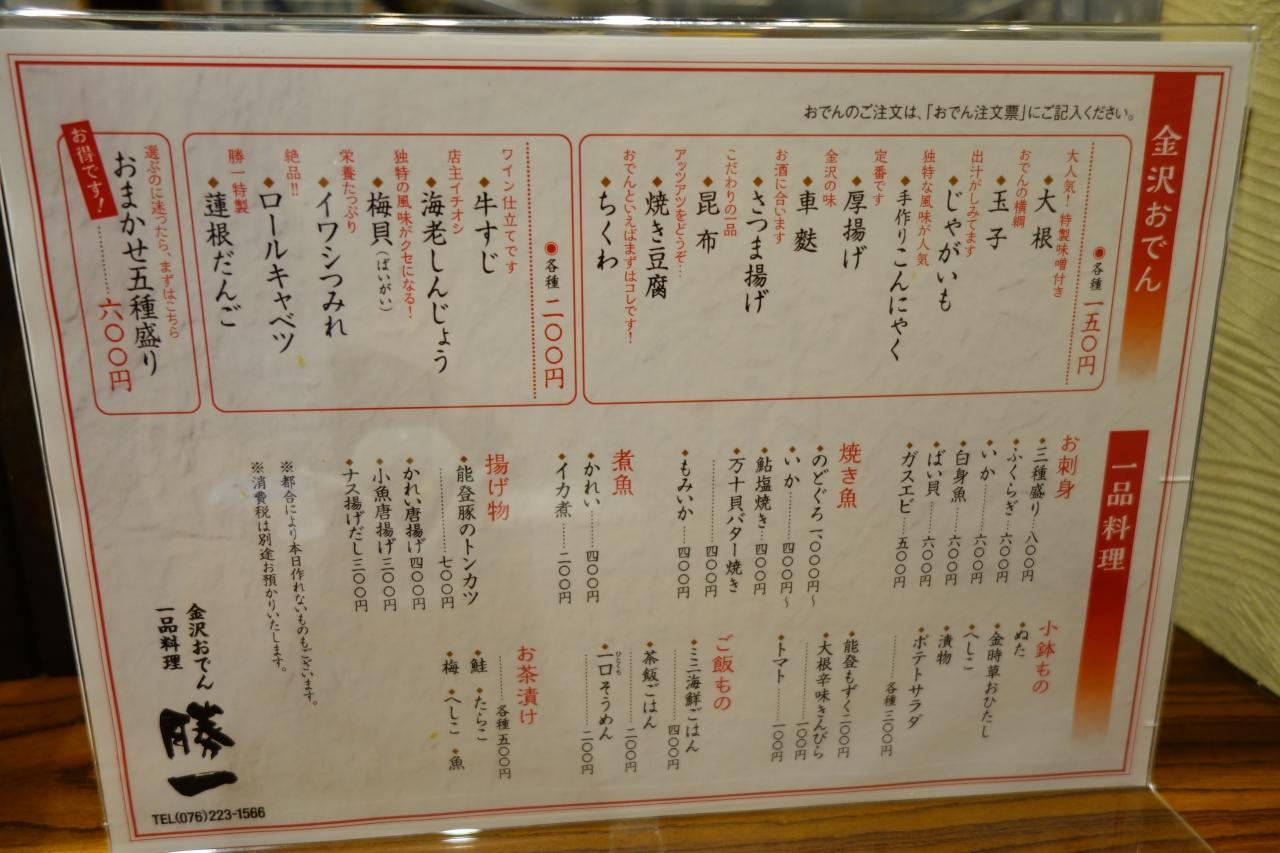 おでんのご注文は、「おでん注文票」にご記入ください。
金沢おでん
●各種 一五〇円
大人気！特製味噌付き
◆大根
おでんの横綱
◆玉子
出汁がしみてます
◆じゃがいも
独特な風味が人気
◆手作りこんにゃく
定番です
◆厚揚げ
金沢の味
◆車麩
お酒に合います
◆さつま揚げ
こだわりの一品
◆昆布
アッツアツをどうぞ…
◆焼き豆腐
おでんといえばまずはコレです！
◆ちくわ
●各種 二〇〇円
ワイン仕立てです
◆牛すじ
店主イチオシ
◆海老しんじょう
独特の風味がクセになる！
◆梅貝（ばいがい）
栄養たっぷり
◆イワシつみれ
絶品!!
◆ロールキャベツ
勝一特製
◆蓮根だんご
お得です！
選ぶのに迷ったら、まずはこちら
おまかせ五種盛り
………六〇〇円
一品料理
お刺身
◆三種盛り…八〇〇円
◆ふくらぎ…六〇〇円
◆いか………六〇〇円
◆白身魚……六〇〇円
◆ばい貝……六〇〇円
◆ガスエビ…五〇〇円
焼き魚
◆のどぐろ一、〇〇〇円〜
◆いか………四〇〇円〜
◆鮎塩焼き…四〇〇円
◆万十貝バター焼き
………四〇〇円
◆もみいか…四〇〇円
煮魚
◆かれい…四〇〇円
◆イカ煮…二〇〇円
揚げ物
◆能登豚のトンカツ
………七〇〇円
◆かれい唐揚げ四〇〇円
◆小魚唐揚げ三〇〇円
◆ナス揚げだし三〇〇円
小鉢もの
◆ぬた
◆金時草おひたし
◆へしこ
◆漬物
◆ポテトサラダ
………各種 三〇〇円
◆能登もずく二〇〇円
◆大根辛味きんぴら
………一〇〇円
◆トマト……一〇〇円
ご飯もの
◆ミニ海鮮ごはん
………四〇〇円
◆茶飯ごはん
………二〇〇円
◆一口そうめん
ひとくち
………二〇〇円
お茶漬け
………各種 五〇〇円
◆鮭 ◆たらこ
◆梅 ◆へしこ ◆魚
※都合により本日作れないものもございます。
※消費税は別途お預かりいたします。
金沢おでん
一品料理
勝一
TEL(076)223-1566